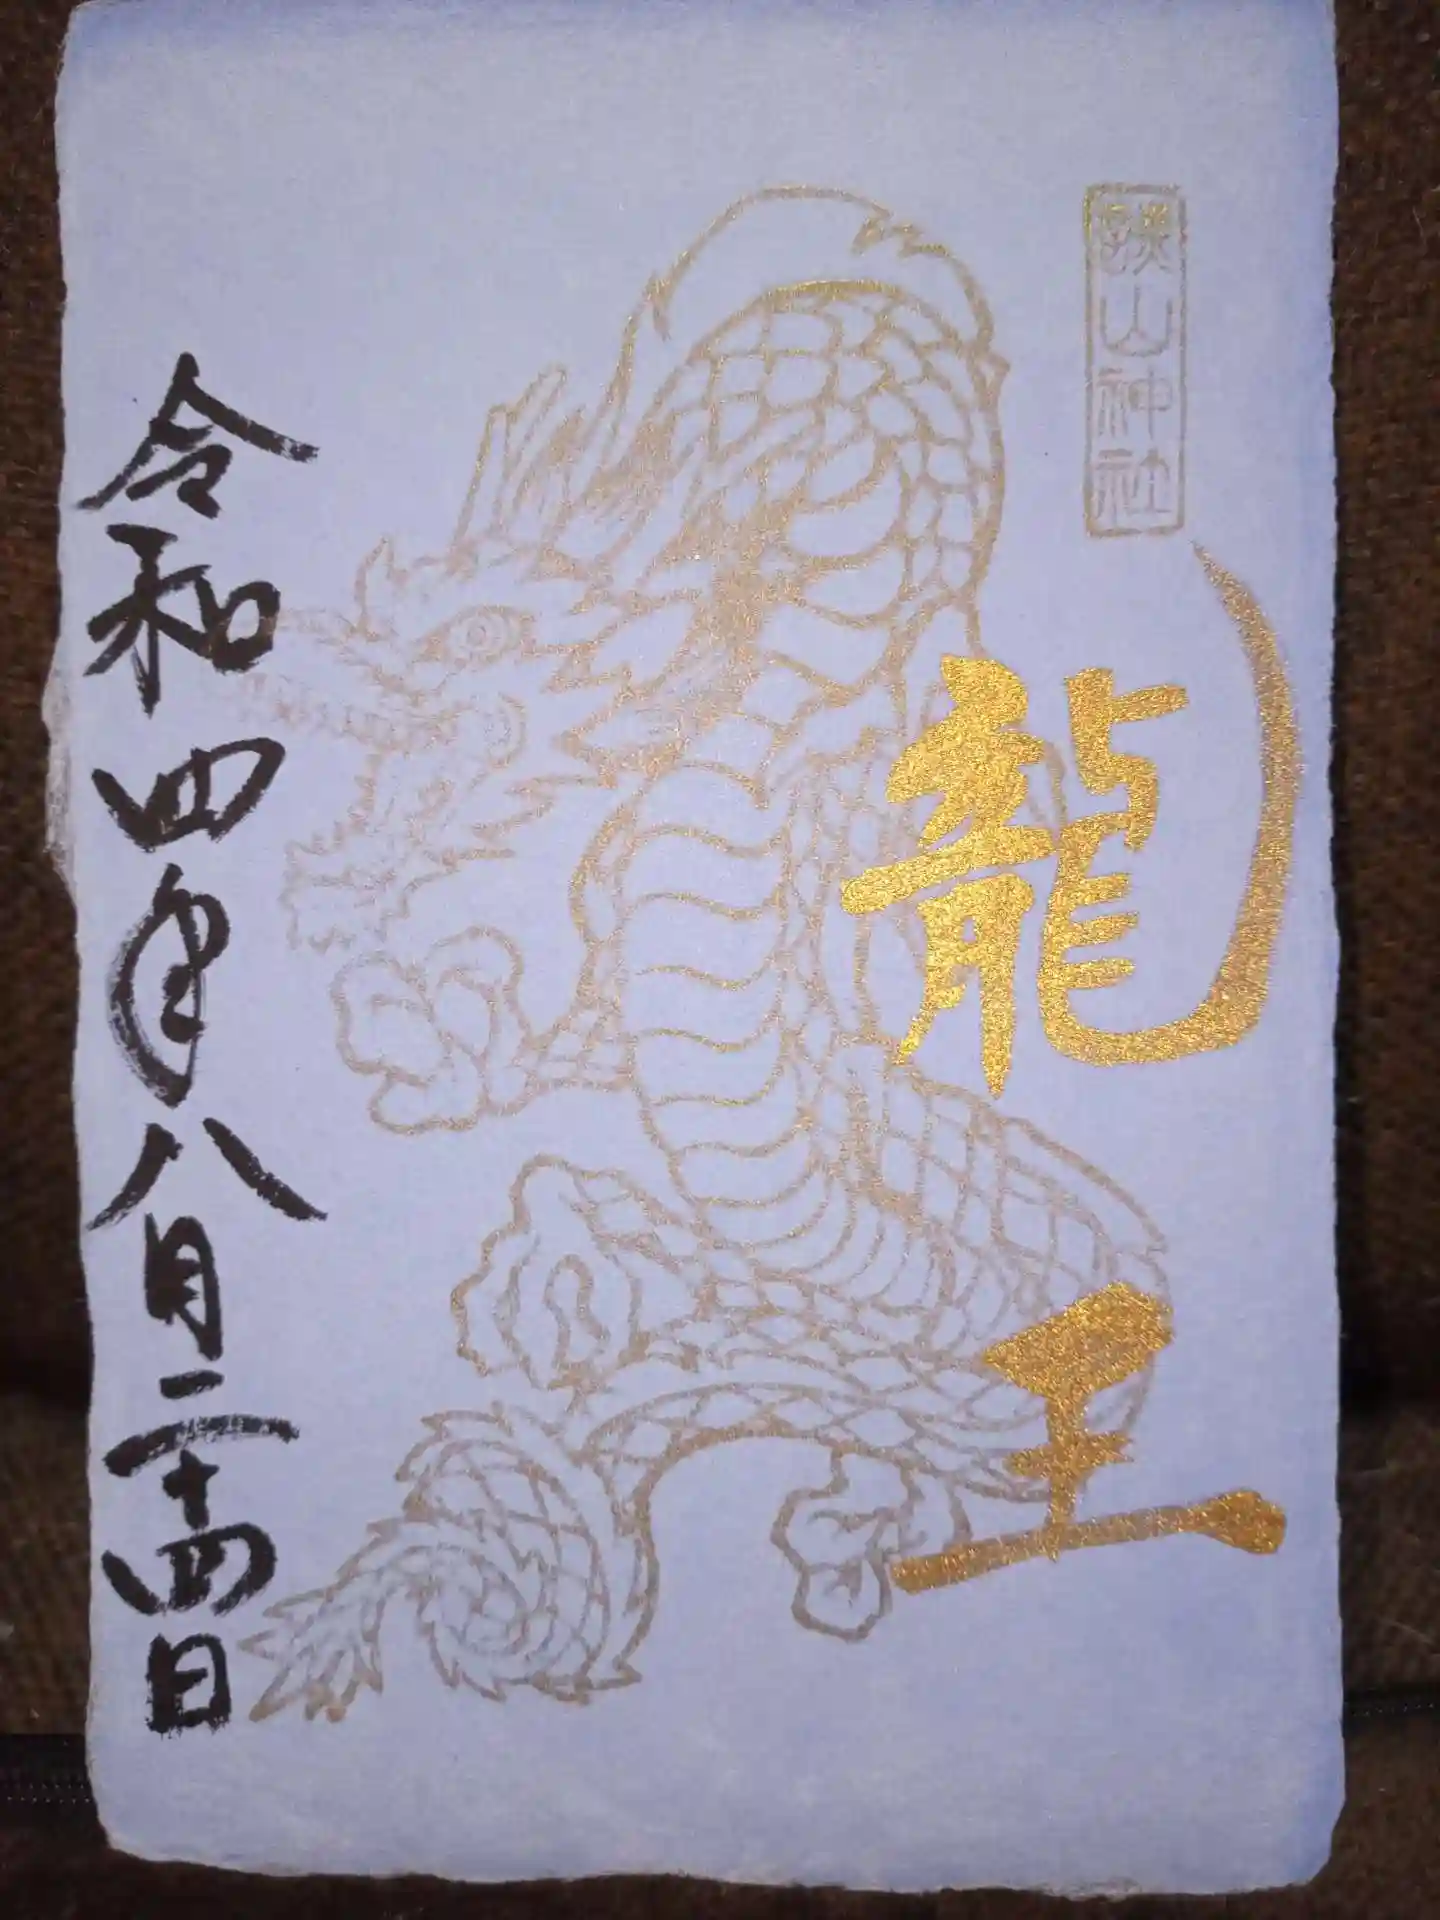 談山神社
龍王
令和四年八月二十四日